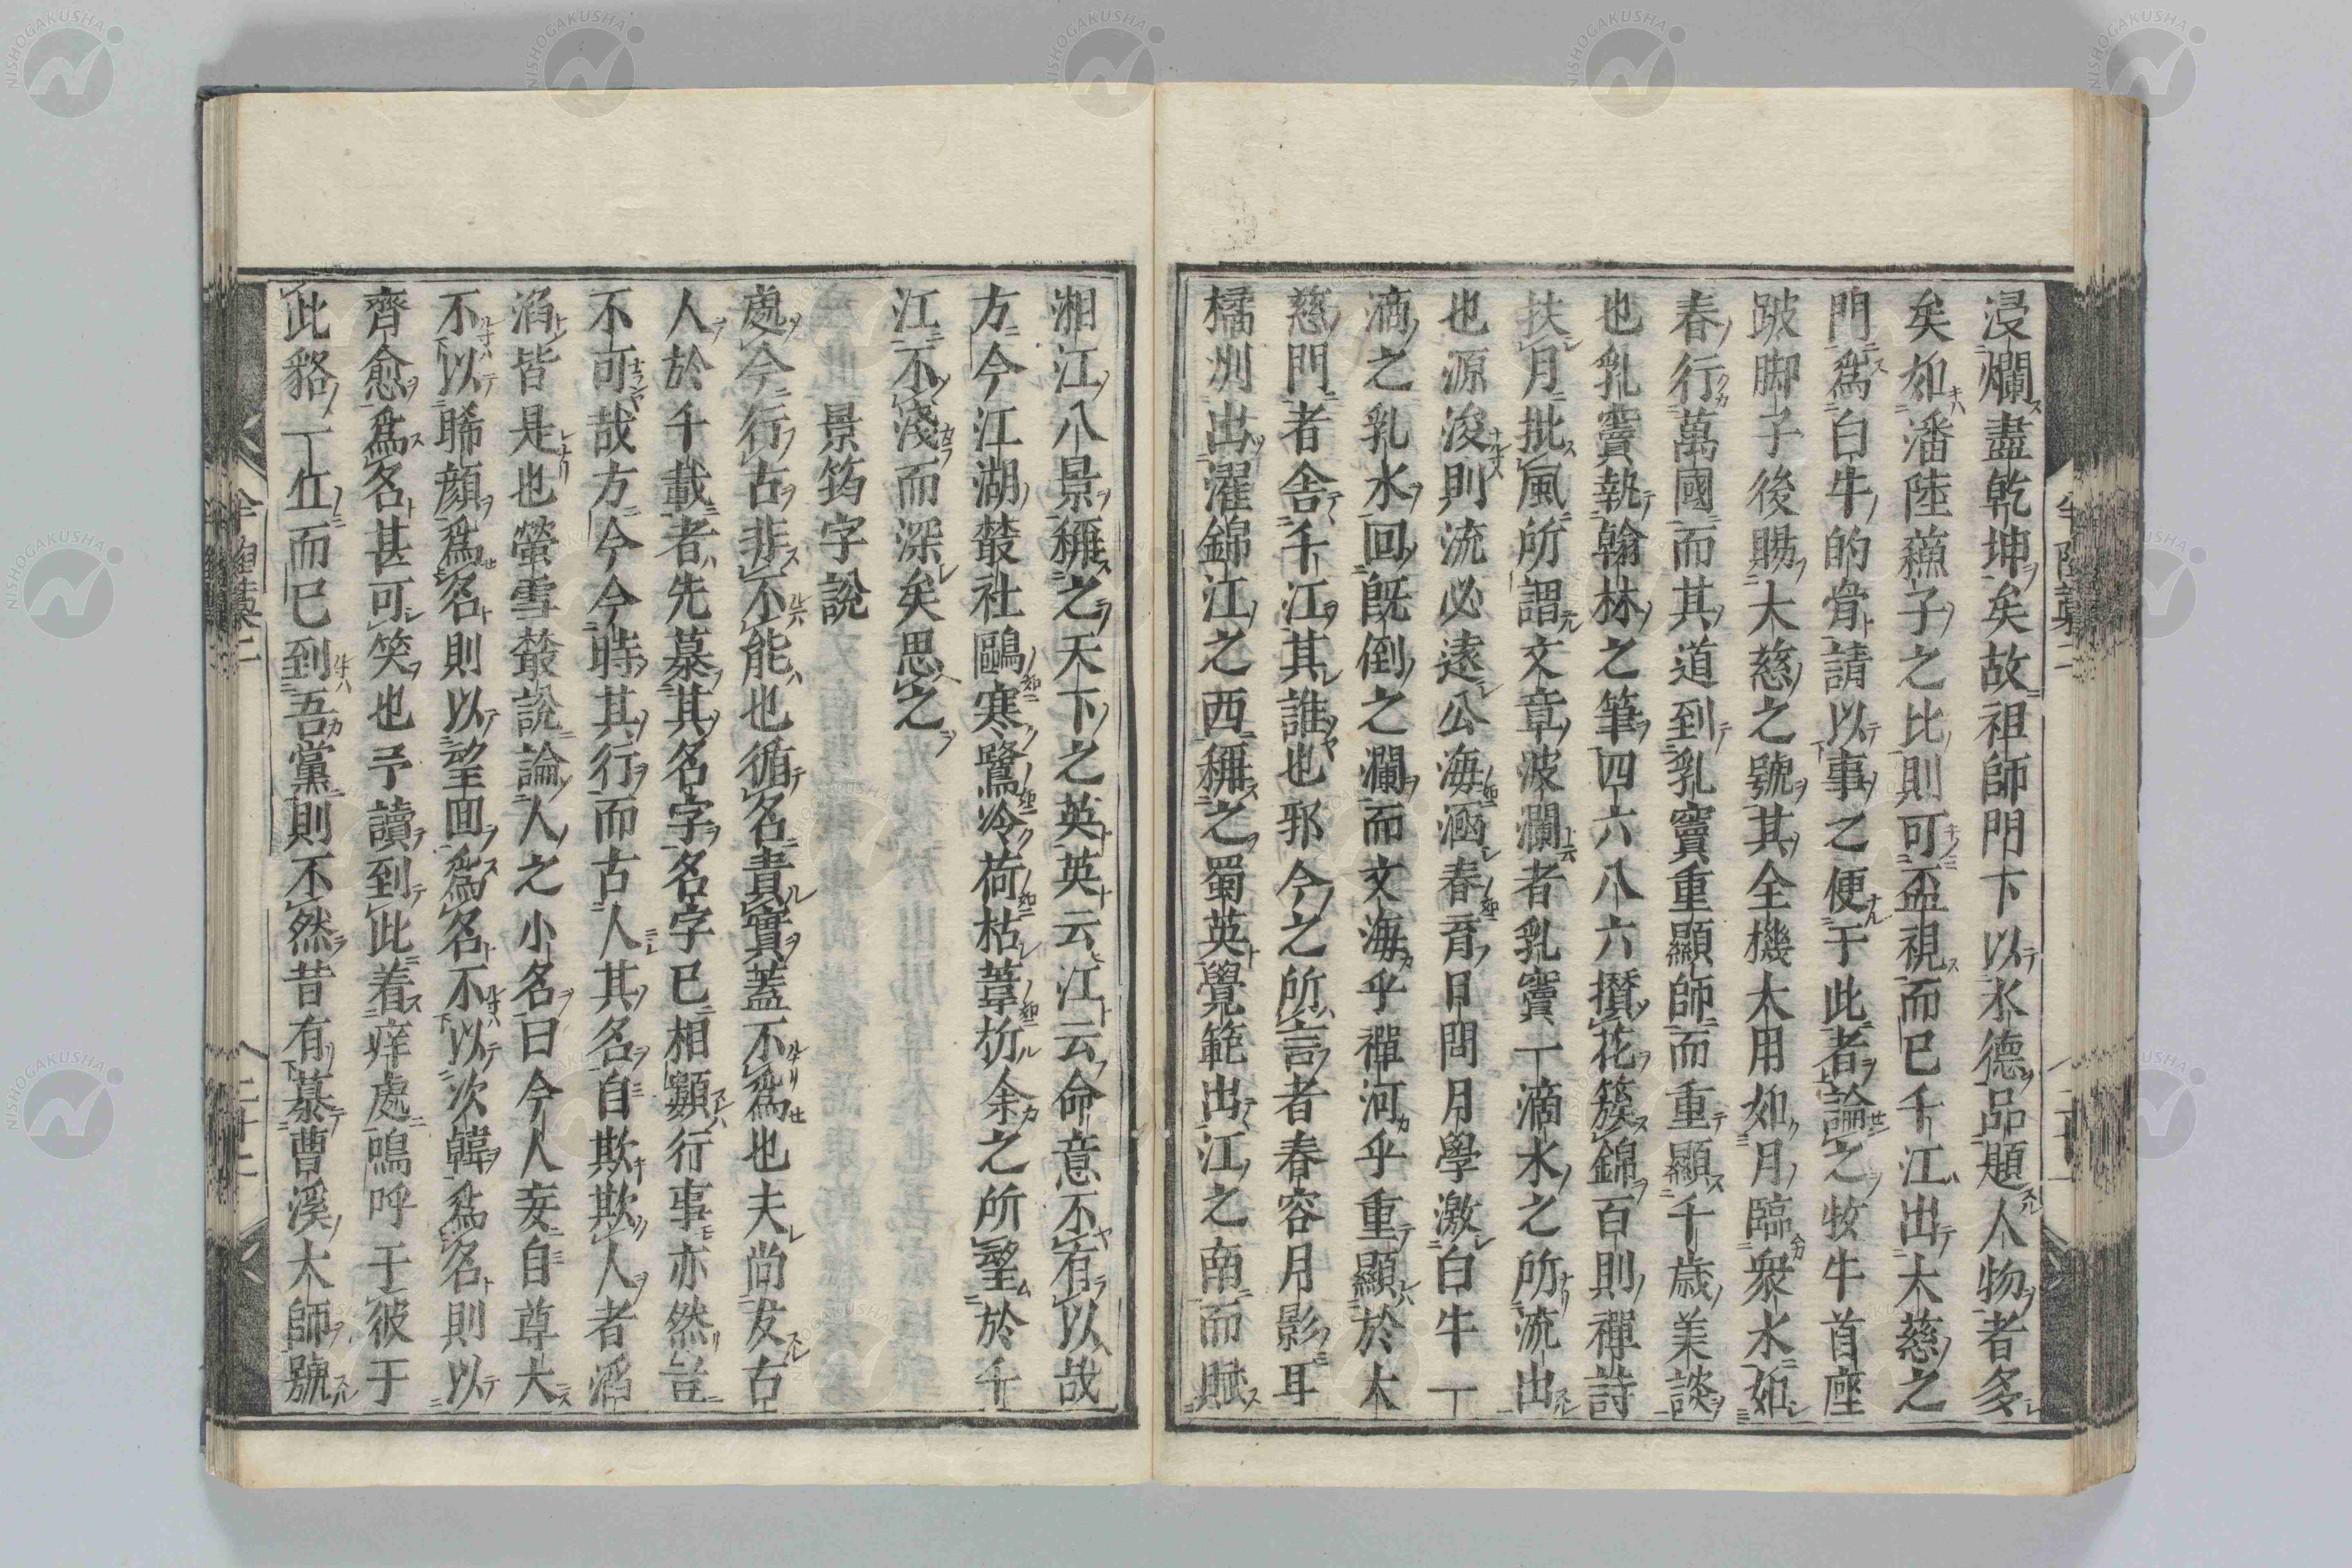 浸爛盡乾坤矣故祖師門下以水德品題人物者多
矣如潘陸蘓子之比則可盃視而已千江出大慈之
門爲白牛的骨請以事之便于此者論之牧牛首座
跛脚子後賜大慈之號其全機大用如月臨衆水如
春行萬國而其道到乳竇重顯師而重顯千歳美談
也乳竇執翰林之筆四六八六攅花簇錦百則禪詩
扶月批風所謂文章波瀾者乳竇一滴水之所流出
也源浚則流必遠公海涵春育日間月學激白牛一
滴之乳水回既倒之瀾而文海乎禪河乎重顯於大
慈門者舎千江其誰也邪今之所言者春容月影耳
橘洲出濯錦江之西稱之蜀英覺範出江之南而賦
湘江八景稱之天下之英英云江云命意不有以哉
方今江湖叢社鷗寒鷺冷荷枯葦折余之所望於千
江不淺而深矣思之
景筠字說
處今行古非不能也循名責實蓋不爲也夫尚友古
人於千載者先慕其名字名字已相類行事亦然豈
不可哉方今今時其行而古人其名自欺欺人者滔
滔皆是也螢雪叢說論人之小名曰今人妄自尊大
不以睎顔爲名則以望回爲名不以次韓爲名則以
齊愈爲名甚可笑也予讀到此着痒處嗚呼于彼于
此貉一丘而已到吾黨則不然昔有慕曹溪大師號